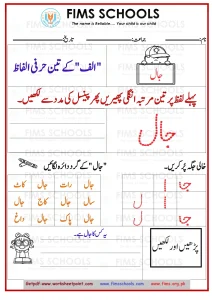 FIMS SCHOOLS
The name is Reliable.... Your child is our child
نام: جماعت: تاریخ:
"الف" کے تین حرفی الفاظ
جال
پہلے لفظ پر تین مرتبہ انگلی پھیریں پھر پینسل کی مدد سے لکھیں۔
جال
"جال" کے گرد دائرہ لگائیں
خالی جگہ پُر کریں۔
جال رات جال کاٹ
سال جال کاج جال
جال پاک جال داغ
یہ کس کا جال ہے۔
پڑھیں اور لکھیں
www.fimsschools.com
www.fims.org.pk